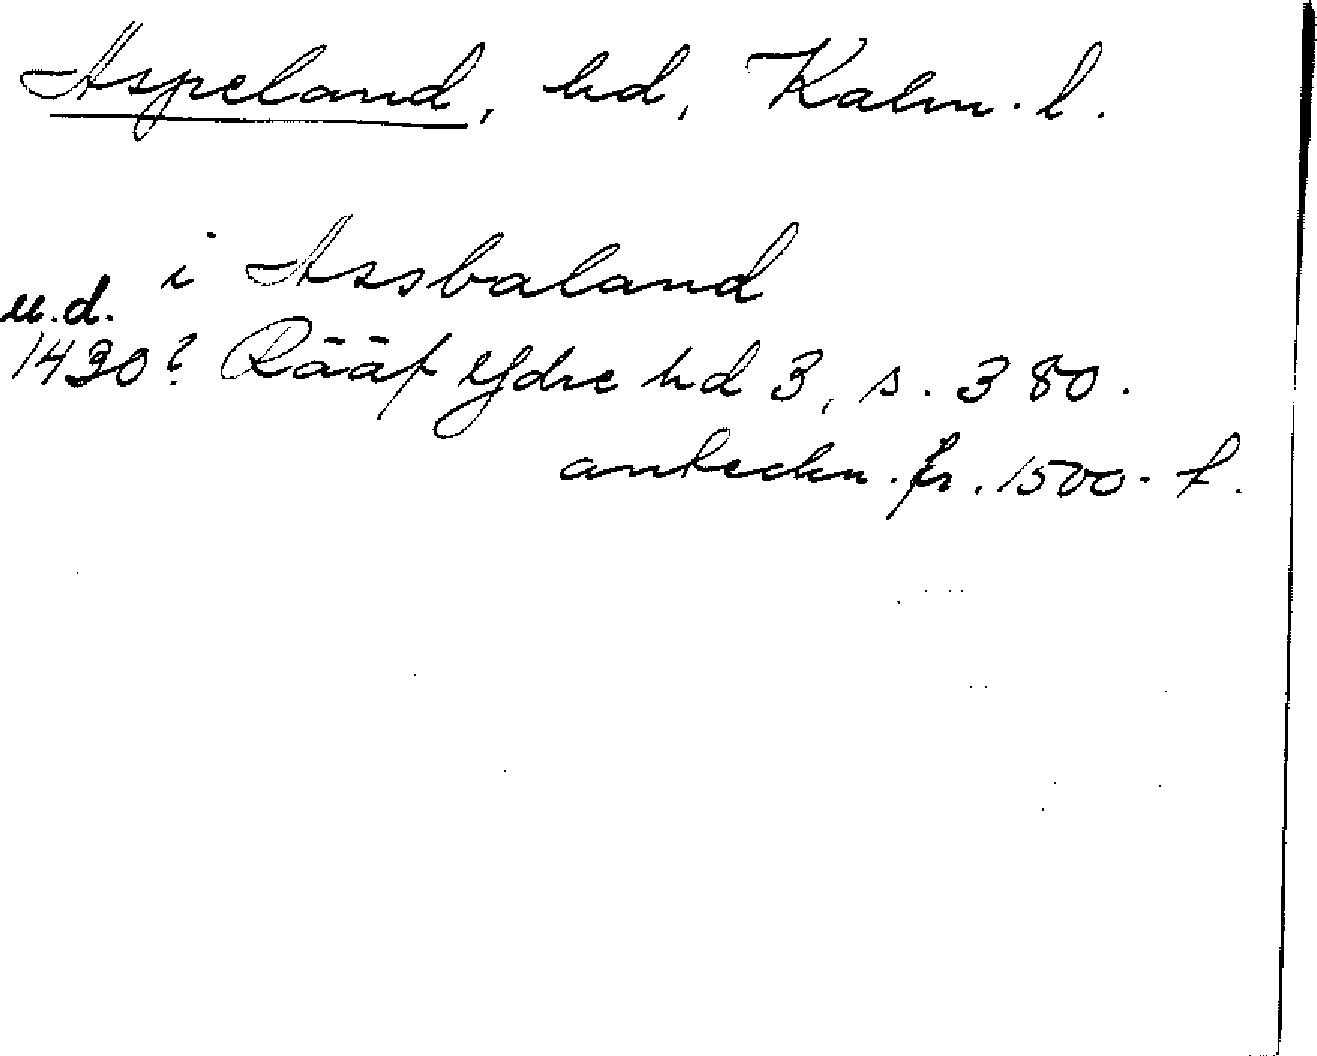 Aspeland, hd, Kalm. l.
i Assbaland
u.d.
1430? Rääf Ydre hd 3, s. 380.
anteckn. fr. 1500-t.